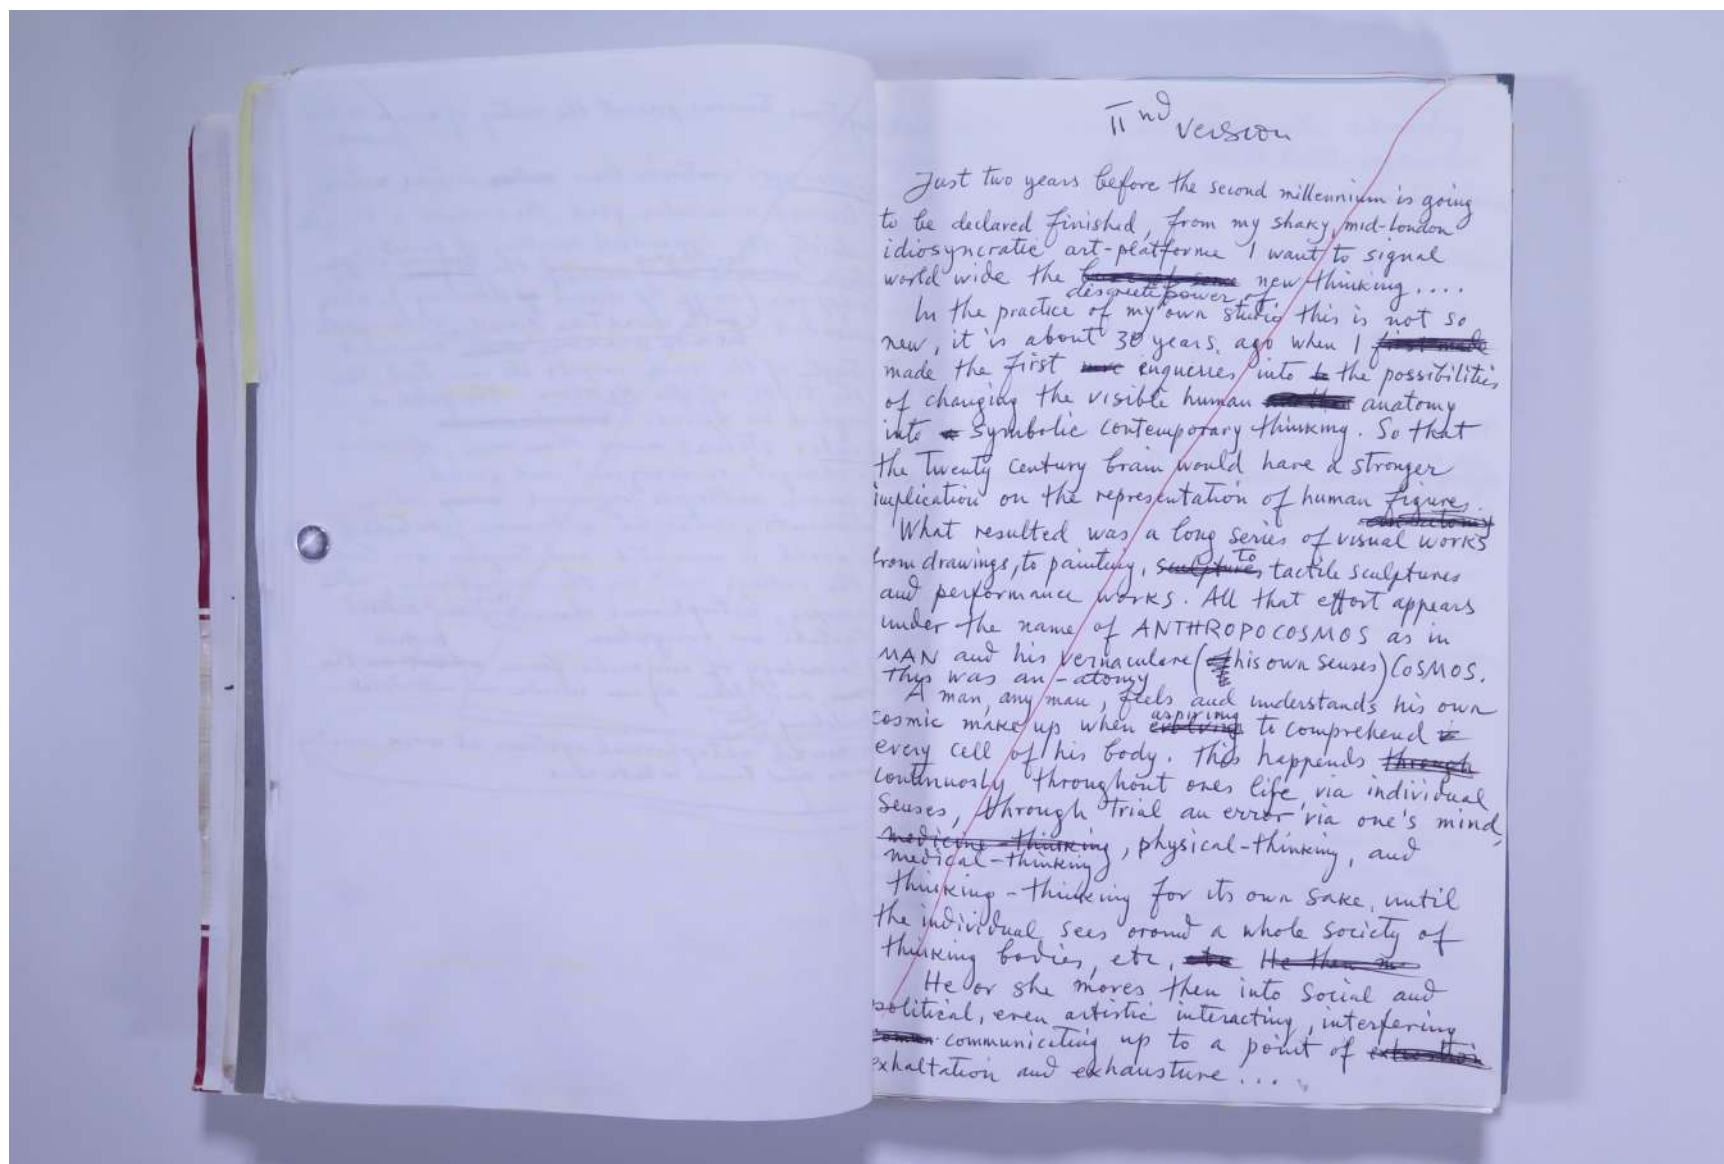 IInd version
Just two years before the second millennium is going
to be declared finished, from my shaky, mid-London
idiosyncratic art-platforme I want to signal
world wide the new thinking....
discrete power of
In the practice of my own studio this is not so
new, it is about 30 years, ago when I first made
made the first enqueries into the possibilities
of changing the visible human anatomy
into a symbolic contemporary thinking. So that
the twenty century brain would have a stronger
implication on the representation of human figures.
anatomy
What resulted was a long series of visual works
from drawings, to painting, sculptures to tactile sculptures
and performance works. All that effort appears
under the name of ANTHROPOCOSMOS as in
MAN and his vernaculare (his own senses) COSMOS.
This was an-atomy
A man, any man, feels and understands his own
aspiring
cosmic make up when evolving to comprehend
every cell of his body. This happends through
continuosly throughout ones life, via individual
senses, through trial an error via one's mind,
medicine-thinking, physical-thinking, and
medical-thinking
thinking-thinking for its own sake, until
the individual sees oround a whole society of
thinking bodies, etc, etc He then
He or she moves then into social and
political, even artistic interacting, interfering
communicating up to a point of
exhaltation and exhausture....